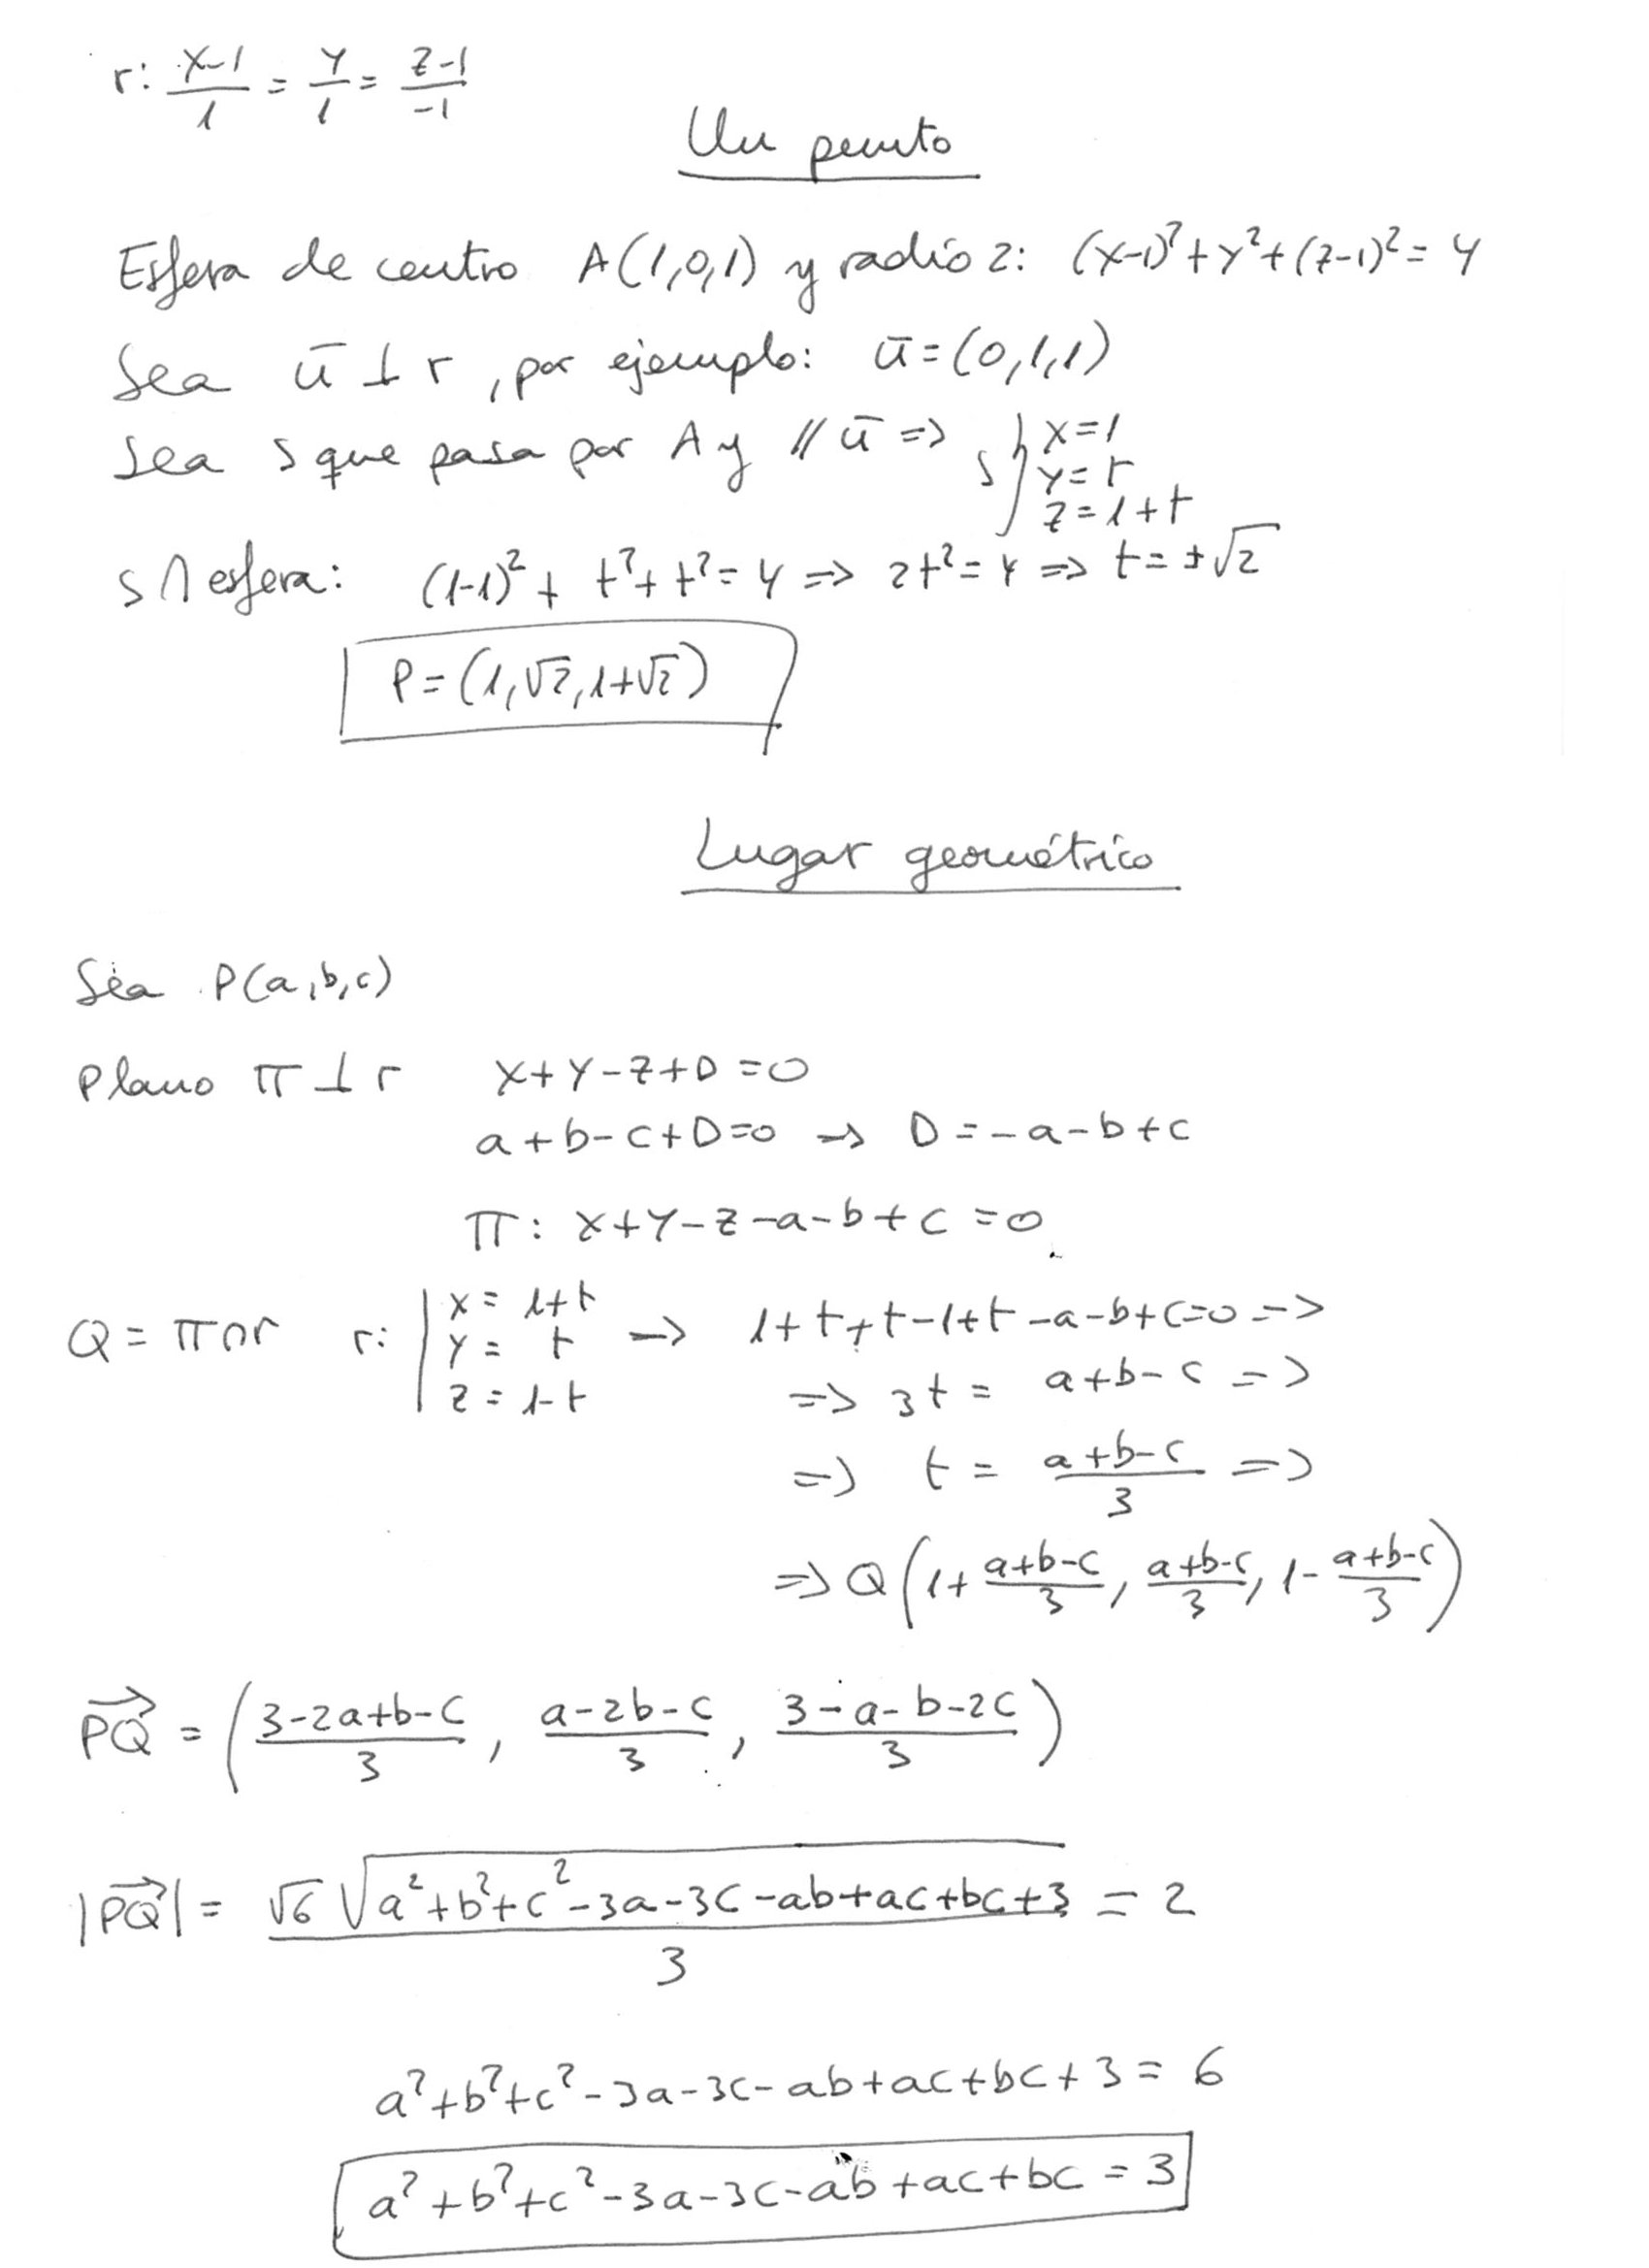 r: (x-1)/1 = y/1 = (z-1)/-1
Un punto
Esfera de centro A(1,0,1) y radio 2: (x-1)²+y²+(z-1)²=4
Sea ū ⊥ r, por ejemplo: ū=(0,1,1)
Sea s que pasa por A y // ū => s { x=1
y=t
z=1+t
s ∩ esfera: (1-1)²+t²+t²=4 => 2t²=4 => t=±√2
P=(1,√2,1+√2)
Lugar geométrico
Sea P(a,b,c)
Plano π ⊥ r x+y-z+D=0
a+b-c+D=0 → D=-a-b+c
π: x+y-z-a-b+c=0
Q = π∩r r: | x=1+t
y= t → 1+t+t-1+t-a-b+c=0 =>
z=1-t => 3t = a+b-c =>
=> t = (a+b-c)/3 =>
=> Q(1+(a+b-c)/3, (a+b-c)/3, 1-(a+b-c)/3)
PQ⃗ = ((3-2a+b-c)/3, (a-2b-c)/3, (3-a-b-2c)/3)
|PQ⃗| = √6 √(a²+b²+c²-3a-3c-ab+ac+bc+3) / 3 = 2
a²+b²+c²-3a-3c-ab+ac+bc+3=6
a²+b²+c²-3a-3c-ab+ac+bc=3